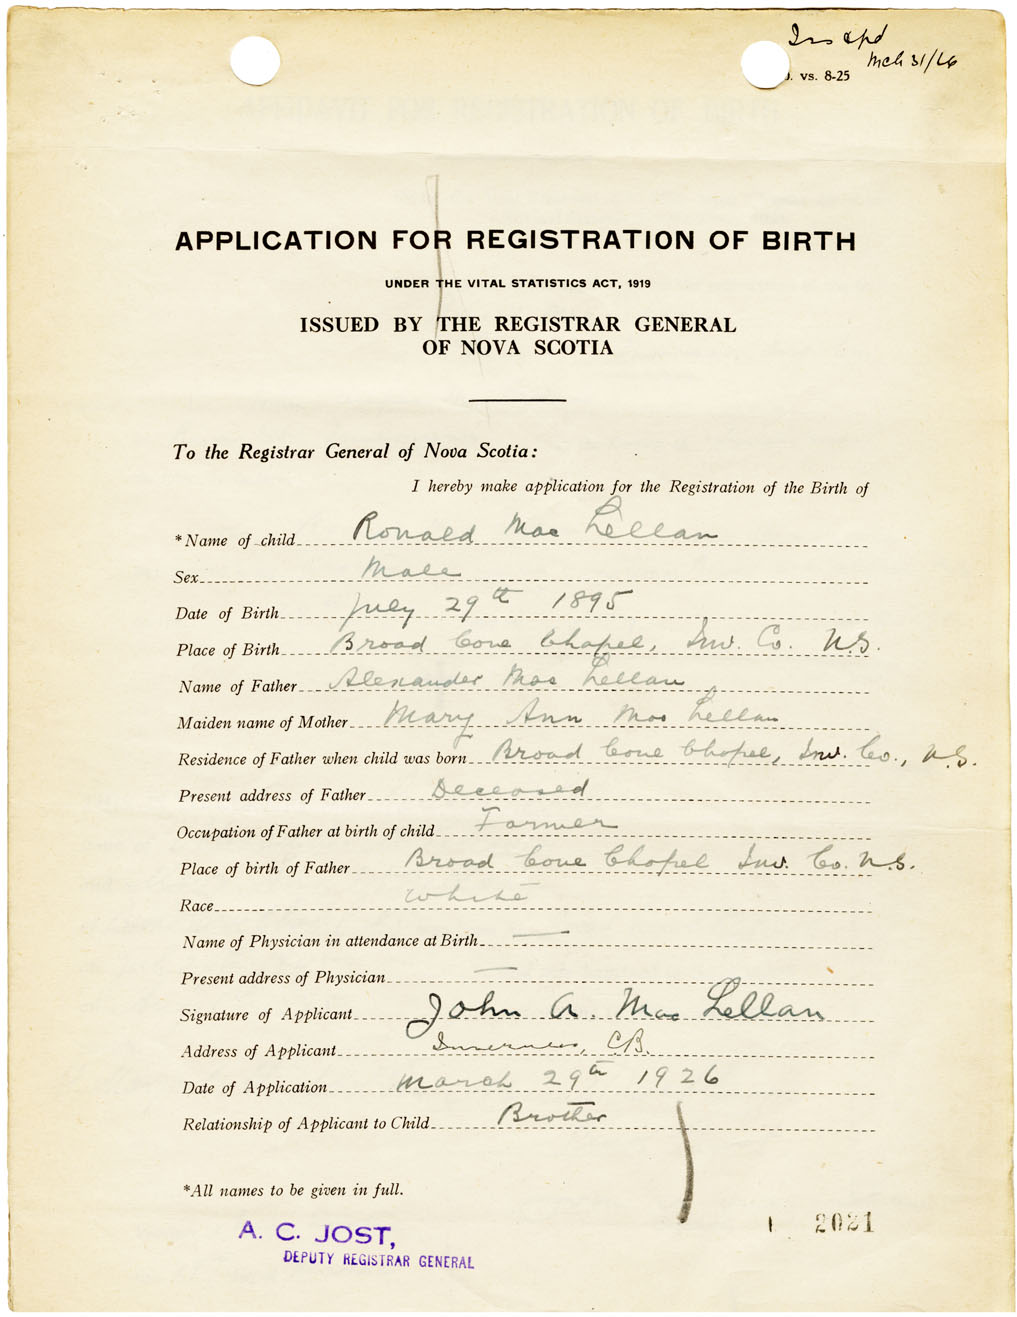 Mch 31/26
vs. 8-25
APPLICATION FOR REGISTRATION OF BIRTH
UNDER THE VITAL STATISTICS ACT, 1919
ISSUED BY THE REGISTRAR GENERAL
OF NOVA SCOTIA
To the Registrar General of Nova Scotia:
I hereby make application for the Registration of the Birth of
*Name of child Ronald Mac Lellan
Sex Male
Date of Birth July 29th 1895
Place of Birth Broad Cove Chapel, Inv. Co. N.S.
Name of Father Alexander Mac Lellan
Maiden name of Mother Mary Ann Mac Lellan
Residence of Father when child was born Broad Cove Chapel, Inv. Co., N.S.
Present address of Father Deceased
Occupation of Father at birth of child Farmer
Place of birth of Father Broad Cove Chapel Inv. Co. N.S.
Race White
Name of Physician in attendance at Birth —
Present address of Physician —
Signature of Applicant John A. Mac Lellan
Address of Applicant Inverness, C.B.
Date of Application March 29th 1926
Relationship of Applicant to Child Brother
*All names to be given in full.
A. C. JOST,
DEPUTY REGISTRAR GENERAL
2021